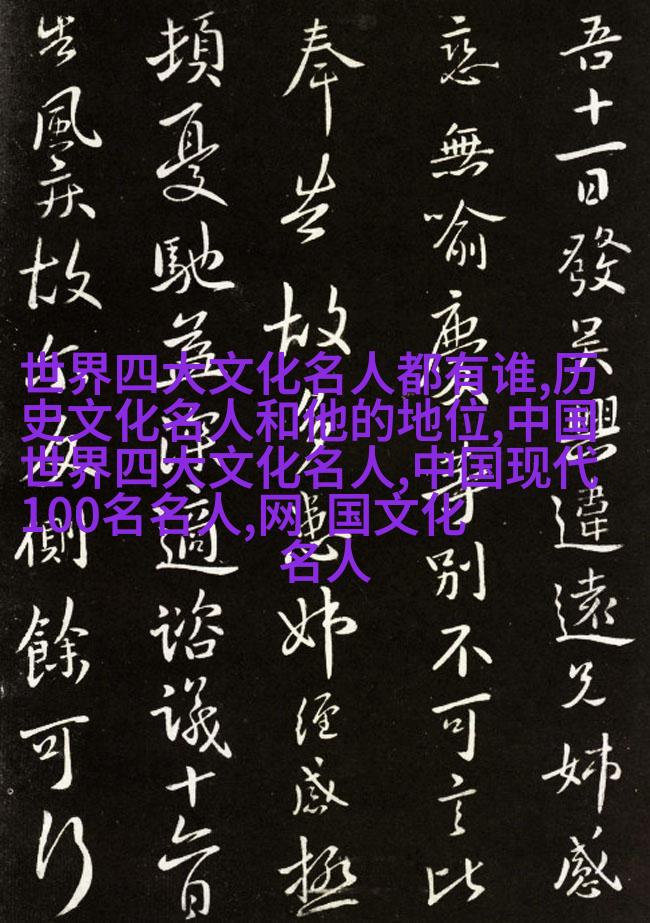 吾十一日發吴興違遠兄姊感
戀無喻廣
別不可言比
奉告故
患姊經感極
頓憂馳
適諮議十六日
告風疾故
側餘可行
世界四大文化名人都有谁,历
史文化名人和他的地位,中国
世界四大文化名人,中国现代
100名名人,网 国文化
名人